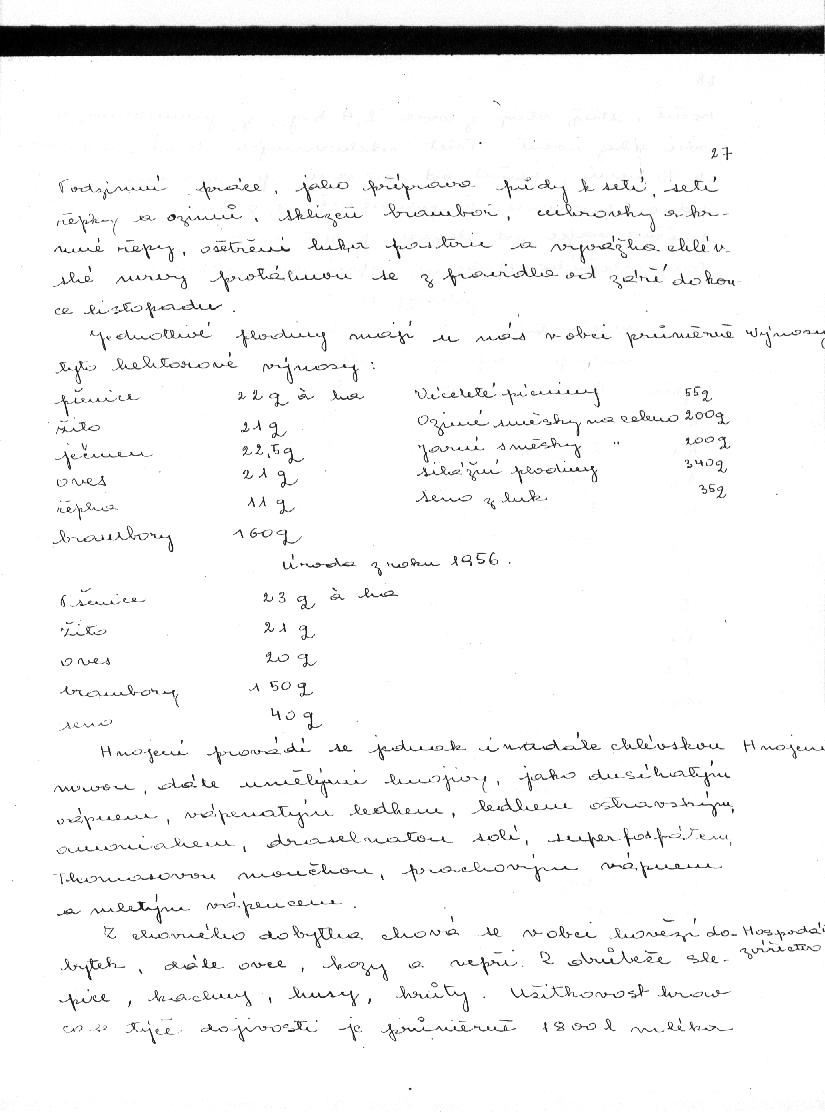 27
Podzimní práce, jako příprava půdy k setí, setí
řepky a ozimů, sklizeň brambor, cukrovky a kr-
mné řepy, ošetření luk a pastvin a vyvážka chlév
ské mrvy protáhnou se z pravidla od září do kon
ce listopadu.
Jednotlivé plodiny mají u nás v obci průměrně Výnosy
tyto hektarové výnosy:
pšenice 22 q à ha Víceleté pícniny 55q
žito 21 q Ozimé směsky na zeleno 200q
ječmen 22,5q Jarní směsky " 200q
oves 21 q silážní plodiny 340q
řepka 11 q seno z luk 35q
brambory 160q
Úroda z roku 1956.
Pšenice 23 q à ha
žito 21 q
oves 20 q
brambory 150q
seno 40 q
Hnojení provádí se jednak i nadále chlévskou Hnojení
mrvou, dále umělými hnojivy, jako dusíkatým
vápnem, vápenatým ledkem, ledkem ostravským,
amoniakem, draselnatou solí, superfosfátem,
Thomasovou moučkou, prachovým vápnem
a mletým vápencem.
Z chovného dobytka chová se v obci hovězí do- Hospodář
bytek, dále ovce, kozy a vepři. Z drůbeže sle- zvířectvo
pice, kachny, husy, krůty. Užitkovost krav
co se týče dojivosti je průměrně 1800 l mléka